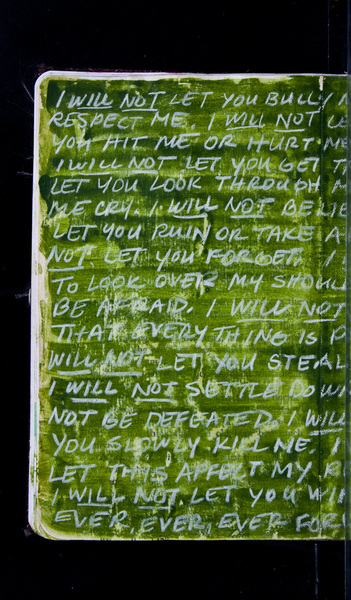 I WILL NOT LET YOU BULLY
RESPECT ME. I WILL NOT
YOU HIT ME OR HURT ME
I WILL NOT LET YOU GET
LET YOU LOOK THROUGH
ME CRY. I WILL NOT
LET YOU RUIN OR TAKE A
NOT LET YOU FORGET. I
TO LOOK OVER MY
BE AFRAID. I WILL NOT
THAT EVERYTHING IS
WILL NOT LET YOU STEAL
I WILL NOT SETTLE DOWN
NOT BE DEFEATED. I WILL
YOU SLOWLY KILL ME. I
LET THIS AFFECT MY
I WILL NOT LET YOU WIN
EVER, EVER, EVER